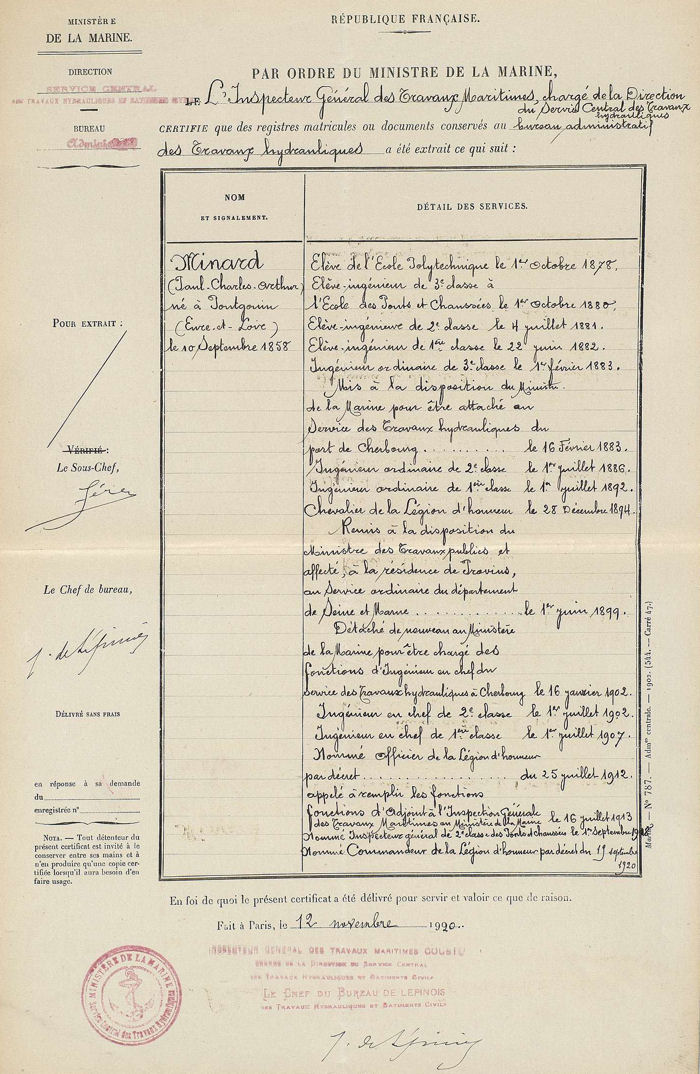 MINISTÈRE
DE LA MARINE.
RÉPUBLIQUE FRANÇAISE.
DIRECTION
SERVICE CENTRAL
DES TRAVAUX HYDRAULIQUES ET BATIMENTS CIVILS
BUREAU
Administratif
PAR ORDRE DU MINISTRE DE LA MARINE,
LE L'Inspecteur Général des Travaux Maritimes, chargé de la Direction
du Service Central des Travaux
hydrauliques
CERTIFIE que des registres matricules ou documents conservés au bureau administratif
des Travaux hydrauliques a été extrait ce qui suit :
NOM
ET SIGNALEMENT.
DÉTAIL DES SERVICES.
Minard
(Paul-Charles-Arthur)
né à Pontgouin
(Eure-et-Loire)
le 10 Septembre 1858
Elève de l'Ecole Polytechnique le 1er Octobre 1878.
Elève-ingénieur de 3e classe à
l'Ecole des Ponts et Chaussées le 1er Octobre 1880.
Elève-ingénieur de 2e classe le 4 juillet 1881.
Elève-ingénieur de 1ère classe le 22 juin 1882.
Ingénieur ordinaire de 3e classe le 1er février 1883.
Mis à la disposition du Ministre
de la Marine pour être attaché au
Service des Travaux hydrauliques du
port de Cherbourg .......... le 16 Février 1883.
Ingénieur ordinaire de 2e classe le 1er juillet 1886.
Ingénieur ordinaire de 1ère classe le 1er juillet 1892.
Chevalier de la Légion d'honneur le 28 Décembre 1894.
Remis à la disposition du
Ministre des Travaux publics et
affecté, à la résidence de Provins,
au Service ordinaire du département
de Seine et Marne .......... le 1er juin 1899.
Détaché de nouveau au Ministère
de la Marine pour être chargé des
fonctions d'Ingénieur en chef du
service des Travaux hydrauliques à Cherbourg le 16 janvier 1902.
Ingénieur en chef de 2e classe le 1er juillet 1902.
Ingénieur en chef de 1ère classe le 1er juillet 1907.
Nommé Officier de la Légion d'honneur
par décret .......... du 25 juillet 1912.
appelé à remplir les fonctions
fonctions d'Adjoint à l'Inspection Générale
des Travaux Maritimes au Ministère de la Marine le 16 juillet 1913
Nommé Inspecteur général de 2e classe des Ponts et Chaussées le 1er Septembre
Nommé Commandeur de la Légion d'honneur par décret du septembre
1920
POUR EXTRAIT :
VÉRIFIÉ :
Le Sous-Chef,
Le Chef de bureau,
J. de Lépinois
DÉLIVRÉ SANS FRAIS
en réponse à sa demande
du
enregistrée n°
NOTA. — Tout détenteur du
présent certificat est invité à le
conserver entre ses mains et à
n'en produire qu'une copie certifiée
lorsqu'il aura besoin d'en
faire usage.
N° 787. — Adm on centrale. — 1902. (544. — Carré 47.)
En foi de quoi le présent certificat a été délivré pour servir et valoir ce que de raison.
Fait à Paris, le 12 novembre 1920.
GENERAL DES TRAVAUX MARITIMES
CHARGE DE LA DIRECTION DU SERVICE CENTRAL
DES TRAVAUX HYDRAULIQUES ET BATIMENTS CIVILS
LE CHEF DU BUREAU DE LEPINOIS
DES TRAVAUX HYDRAULIQUES ET BATIMENTS CIVILS
MINISTÈRE DE LA MARINE
Service Central des Travaux Hydrauliques
J. de Lépinois